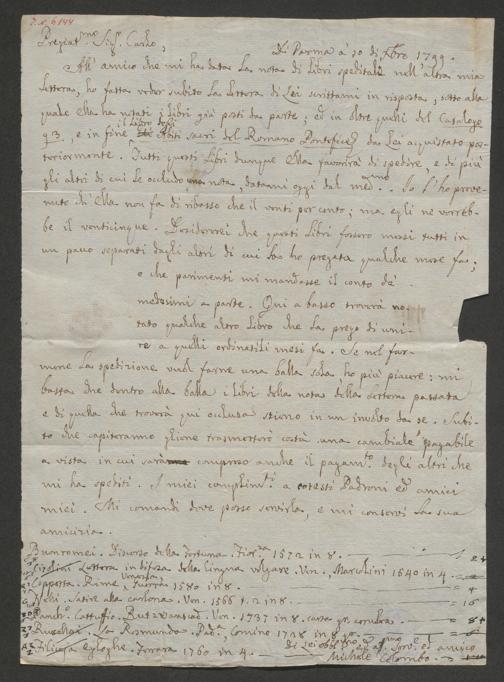 Pregiat.mo Sig.r Carlo,
Di Parma a' 20 di Xbre 1799.
All' amico che mi ha data la nota di Libri speditale nell' altra mia
lettera, ho fatta veder subito la lettera di Lei scrittami in risposta, sotto alla
quale ella ha notati i Libri già posti da parte; ed in oltre quelli del Catalogo
93, e in fine il Libro degli Abiti sacri del Romano Pontefice da Lei acquistato pos-
teriormente. Tutti questi Libri dunque Ella favorirà di spedire, e di più
gli altri di cui Le occludo nota datami oggi dal med.mo. Io l'ho preve-
nuto ch' Ella non fa di ribasso che il venti per cento; ma egli ne vorreb-
be il venticinque. Desidererei che questi Libri fossero messi tutti in
un pacco separati dagli altri di cui La ho pregata qualche mese fa;
e che parimenti mi mandasse il conto de'
medesimi a parte. Qui a basso troverà no-
tato qualche altro Libro che La prego di uni-
re a quelli ordinatile mesi fa. Se nel far-
mene la spedizione vuol farne una balla sola ho più piacere: mi
basta che dentro alla balla i libri della nota della lettera passata
e di quella che troverà qui occlusa stieno in un involto da se. Subi-
to che capiteranno gliene trasmetterò costà una cambiale pagabile
a vista in cui sarà compreso anche il pagam.to degli altri che
mi ha spediti. I miei complim.ti a cotesti Padroni ed amici
miei. Mi comandi dove posso servirla, e mi conservi la sua
amicizia.
Buonromei. Discorso della Fortuna. Fior.za 1572 in 8.
Citolini Lettera in difesa della lingua volgare. Ven. Marcolini 1540 in 4
Coppetta. Rime. Venezia 1580 in 8.
Nelli. Satire alla carlona. Ven. 1566 t. 2 in 8
Catuffio. Rutzvanscad. Ven. 1737 in 8. carta
Rucellai. La Rosmunda. Pad. Comino 1728 in 8
Egloghe. Ferrara 1760 in 4.
Di Lei
ed amico
Michele Colombo